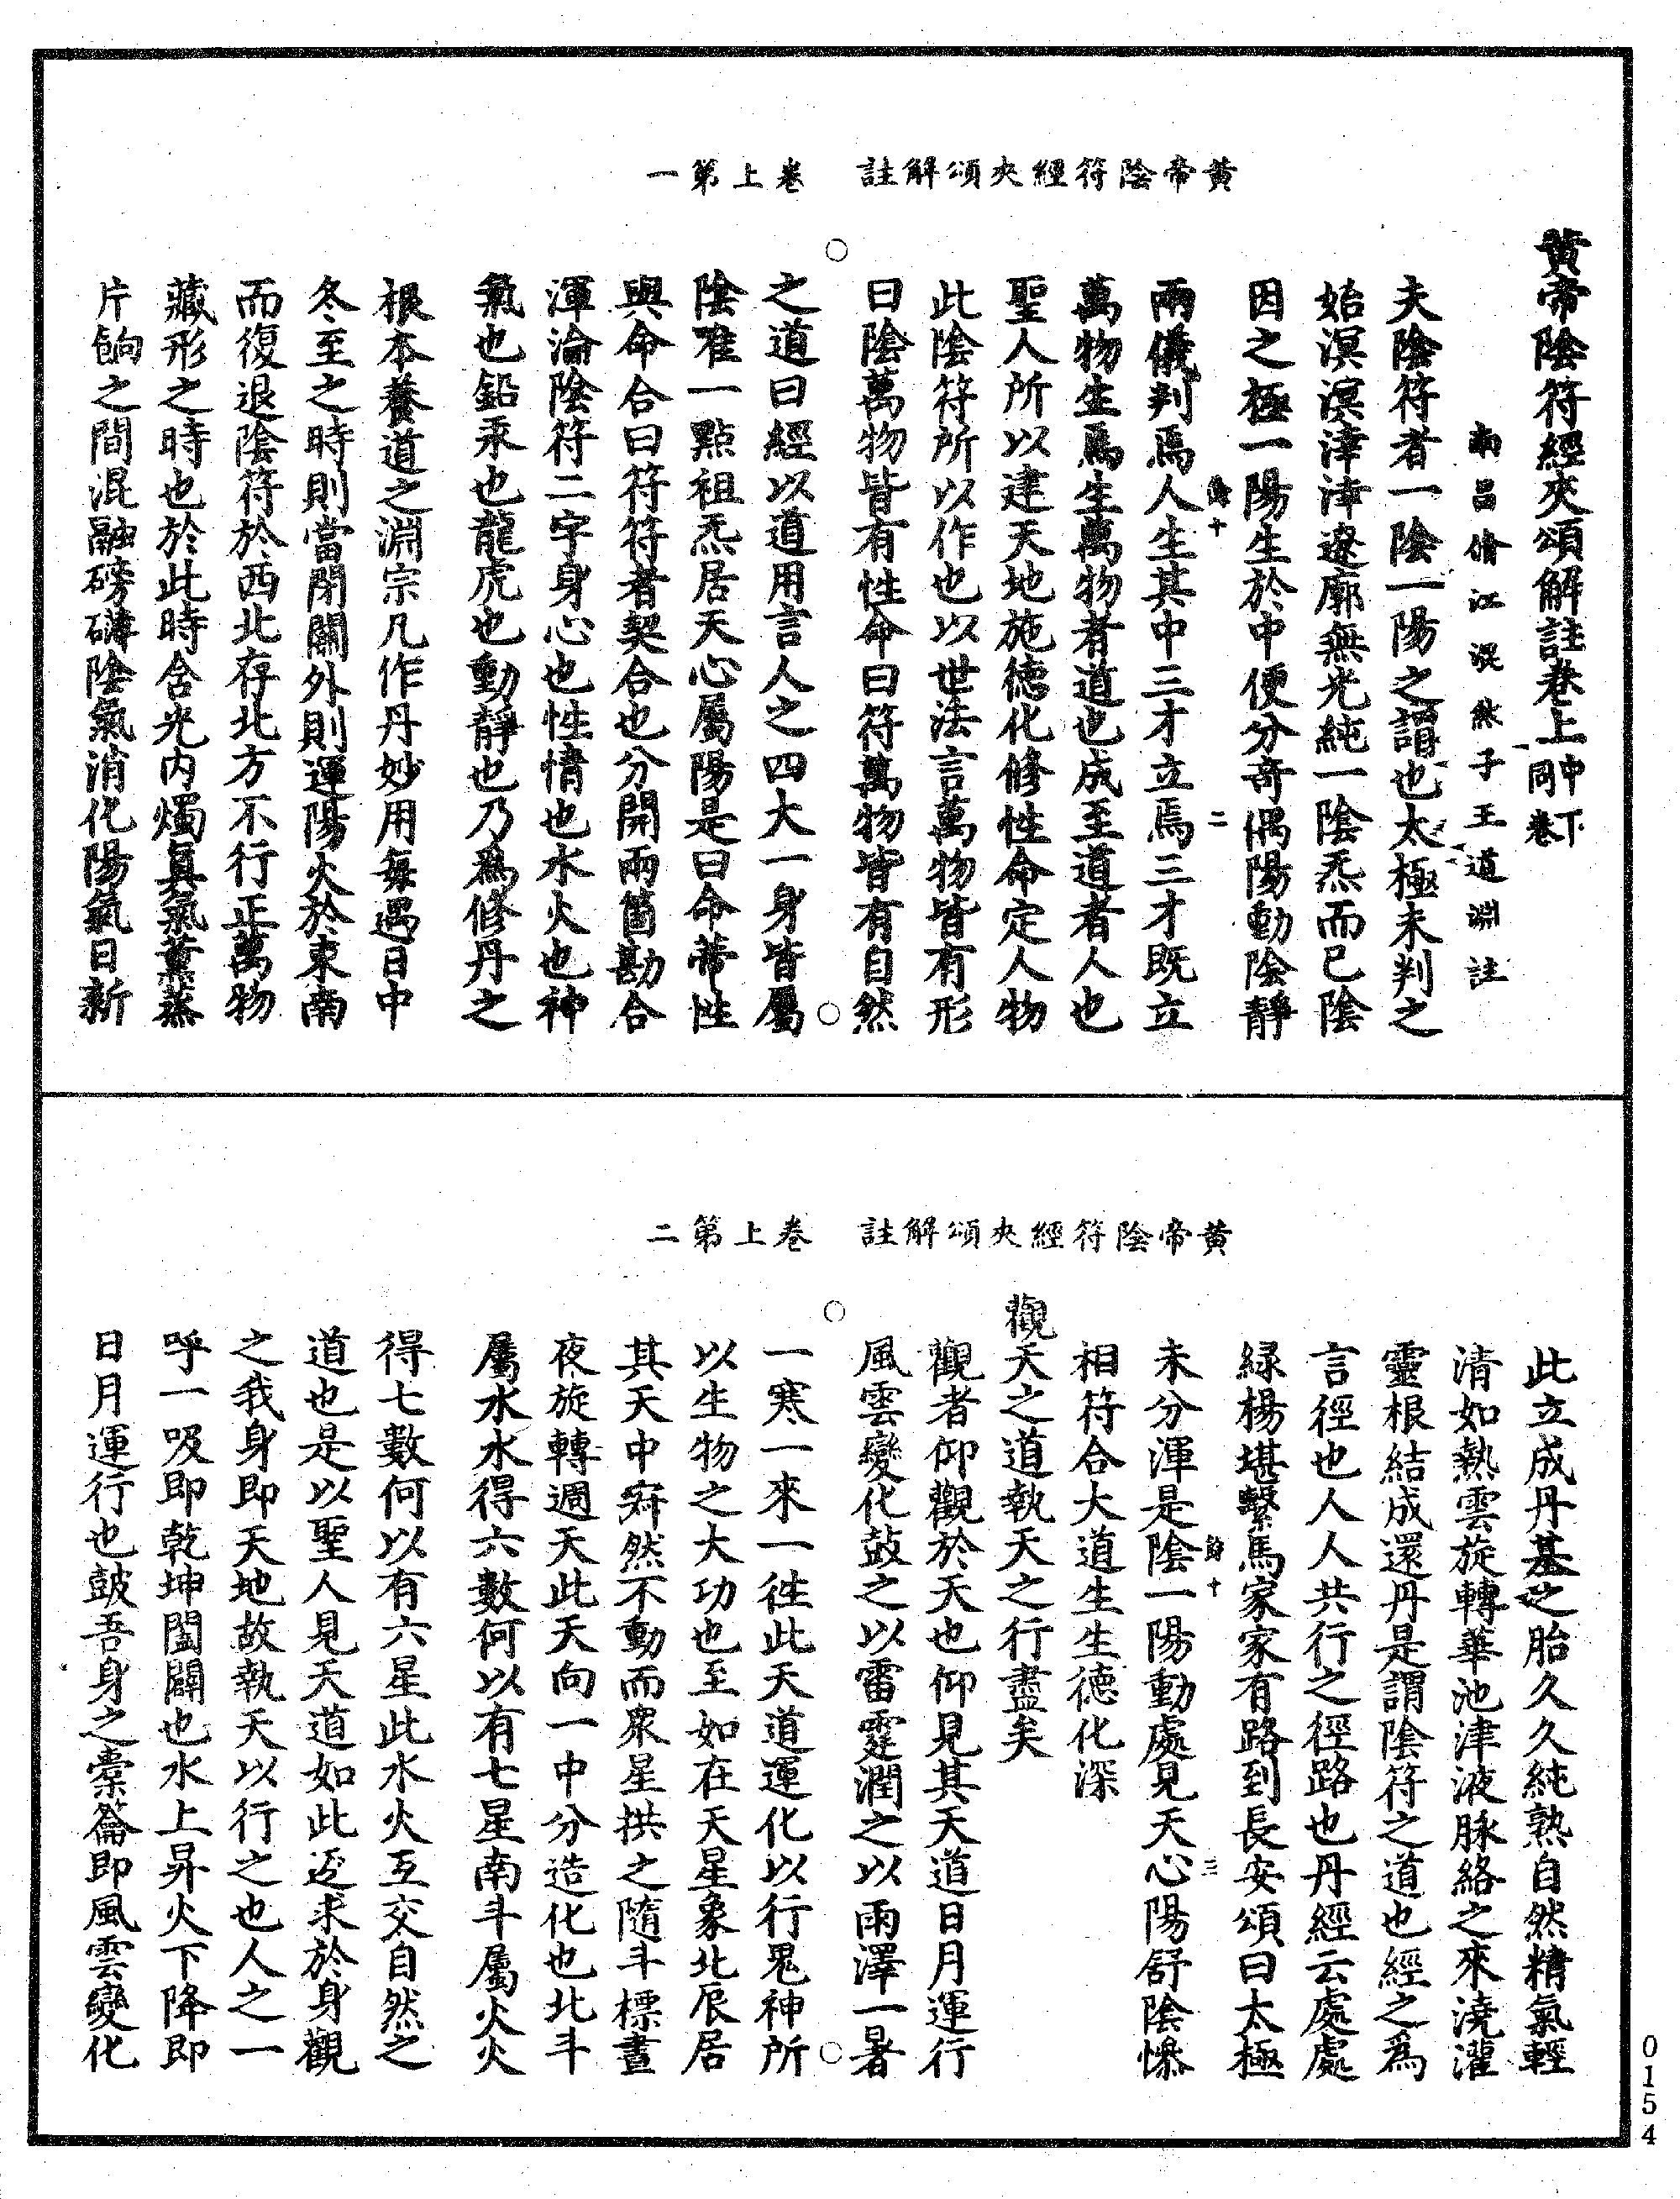 黄帝陰符經夾頌解註 卷上第一
黄帝陰符經夾頌解註卷上中下同卷
南昌脩江混然子王道淵註
夫陰符者一陰一陽之謂也太極未判之
始溟溟涬涬遼廓無光純一陰炁而已陰
因之極一陽生於中便分奇偶陽動陰靜
兩儀判焉人生其中三才立焉三才既立
萬物生焉生萬物者道也成至道者人也
聖人所以建天地施德化修性命定人物
此陰符所以作也以世法言萬物皆有形
曰陰萬物皆有性命曰符萬物皆有自然
之道曰經以道用言人之四大一身皆屬
陰唯一點祖炁居天心屬陽是曰命蔕性
與命合曰符符者契合也分開兩箇勘合
渾淪陰符二字身心也性情也水火也神
氣也鉛汞也龍虎也動靜也乃爲修丹之
根本養道之淵宗凡作丹妙用每遇日中
冬至之時則當閉關外則運陽火於東南
而復退陰符於西北存北方不行正萬物
藏形之時也於此時含光内燭真氣薰蒸
片餉之間混融磅礴陰氣消化陽氣日新
黄帝陰符經夾頌解註 卷上第二
此立成丹基之胎久久純熟自然精氣輕
清如熱雲旋轉華池津液脉絡之來澆灌
靈根結成還丹是謂陰符之道也經之爲
言徑也人人共行之徑路也丹經云處處
緑楊堪繫馬家家有路到長安頌曰太極
未分渾是陰一陽動處見天心陽舒陰慘
相符合大道生生德化深
觀天之道執天之行盡矣
觀者仰觀於天也仰見其天道日月運行
風雲變化鼓之以雷霆潤之以雨澤一暑
一寒一來一往此天道運化以行鬼神所
以生物之大功也至如在天星象北辰居
其天中寂然不動而衆星拱之隨斗標晝
夜旋轉週天此天向一中分造化也北斗
屬水水得六數何以有七星南斗屬火火
得七數何以有六星此水火互交自然之
道也是以聖人見天道如此返求於身觀
之我身即天地故執天以行之也人之一
呼一吸即乾坤闔闢也水上昇火下降即
日月運行也鼓吾身之橐籥即風雲變化
0154